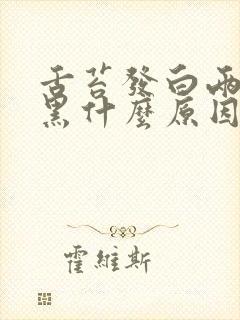 舌苔發白兩
黑什麼原因
霍維斯